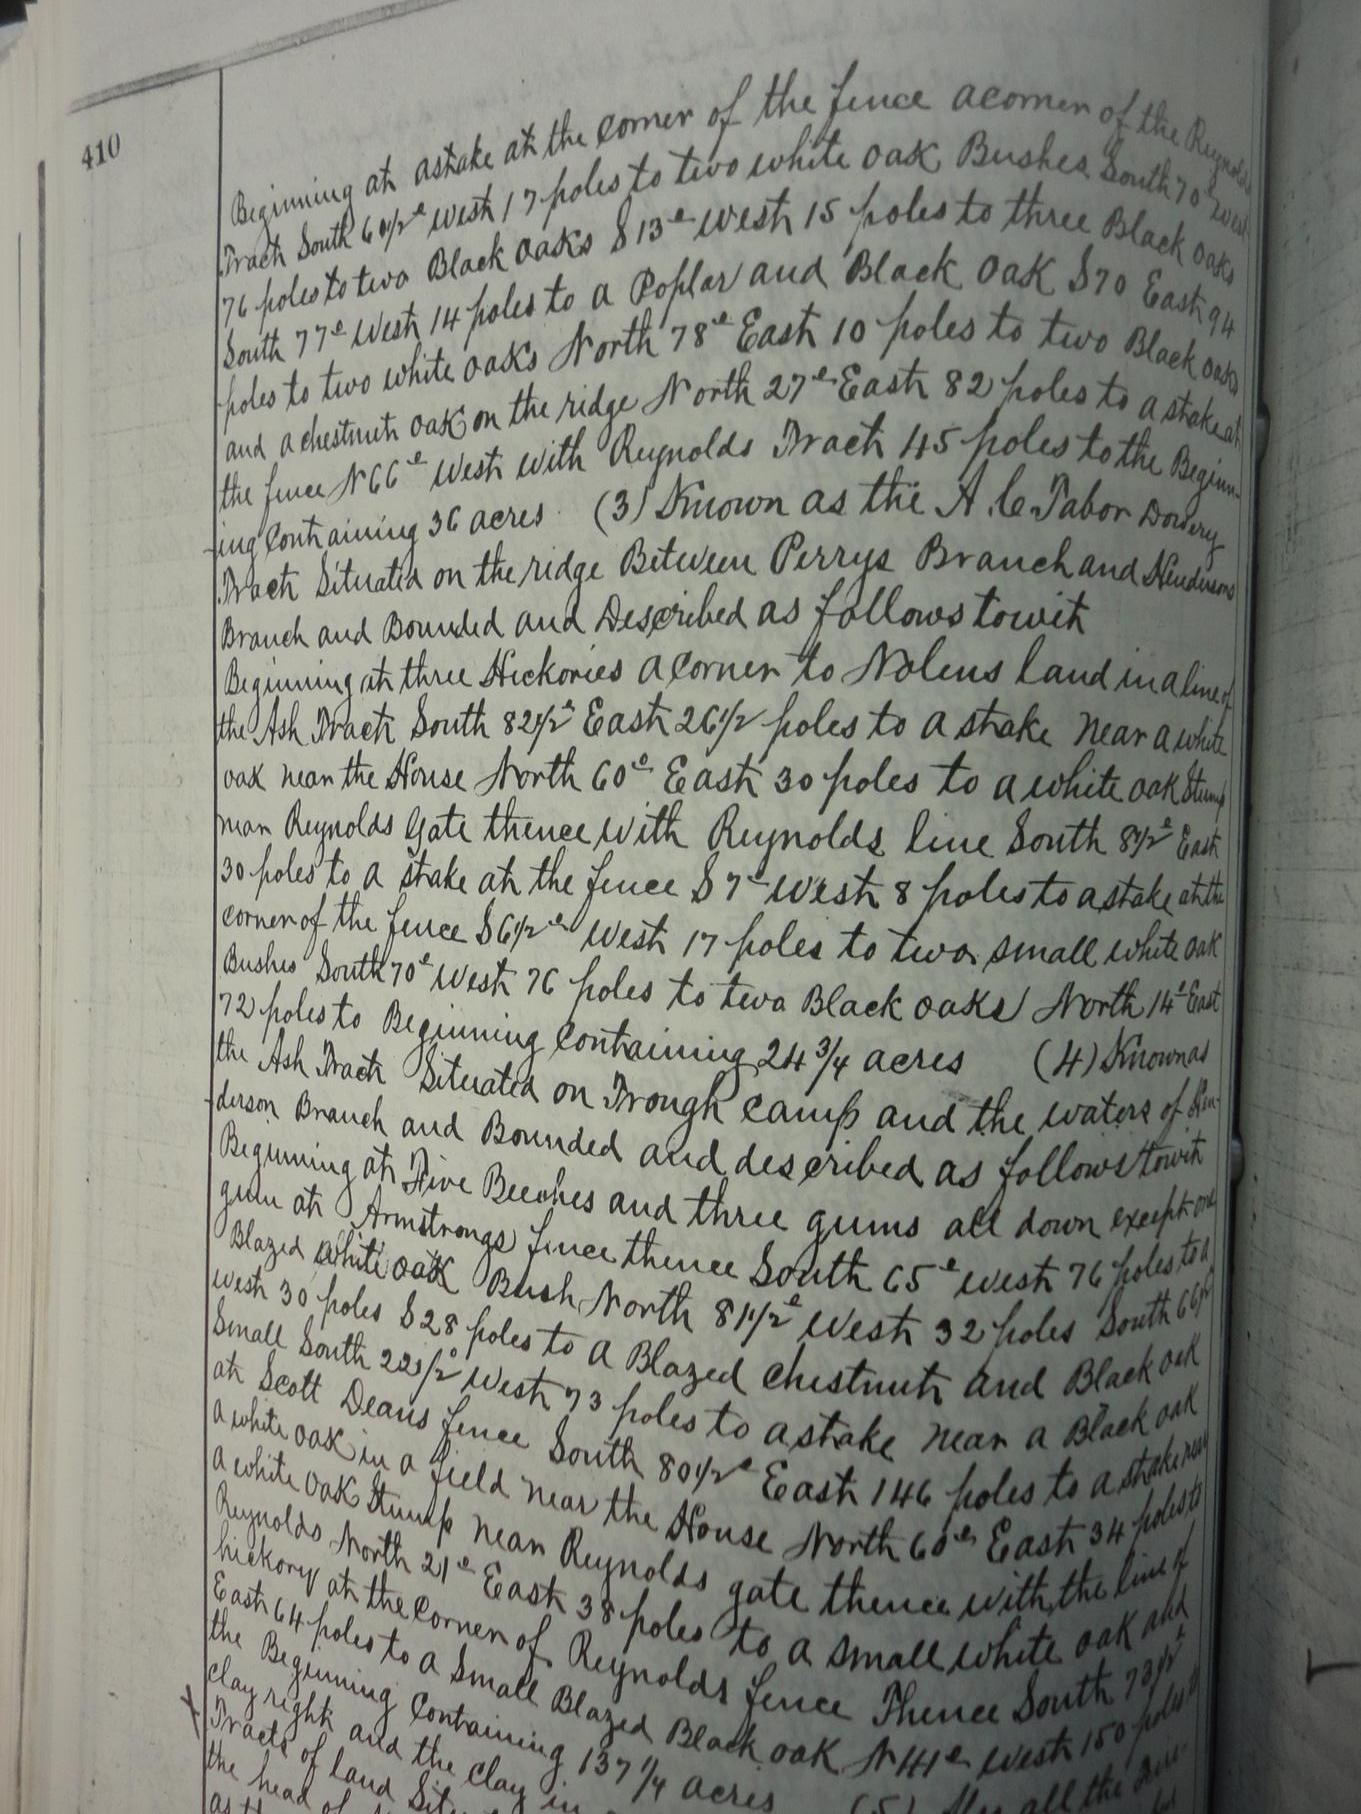 410
Beginning at astake at the corner of the fence acorner of the Reynolds
Tract South 60 1/2° West 17 poles to two white oak Bushes South 70° West
76 poles to two Black oaks S 13° West 15 poles to three Black oaks
South 77° West 14 poles to a Poplar and Black Oak S 70 East 94
poles to two white oaks North 78° East 10 poles to two Black oaks
and a chestnut oak on the ridge North 27° East 82 poles to a stake at
the fence N 66° West with Reynolds Tract 45 poles to the Beginn-
-ing Containing 36 acres (3) Known as the A. C. Tabor Dowery
Tract Situated on the ridge Between Perrys Branch and Hendersons
Branch and Bounded and Described as follows towit
Beginning at three Hickories a corner to Nolens land in a line of
the Ash Tract South 82 1/2° East 26 1/2 poles to a stake near a white
oak near the House North 60° East 30 poles to a white oak Stump
near Reynolds Gate thence with Reynolds line South 8 1/2° East
30 poles to a stake at the fence S 7° West 8 poles to a stake at the
corner of the fence S 6 1/2° West 17 poles to two small white oak
Bushes South 70° West 76 poles to two Black oaks North 14° East
72 poles to Beginning Containing 24 3/4 acres (4) Known as
the Ash Tract Situated on Trough Camp and the waters of Hen-
-derson Branch and Bounded and described as follows towit
Beginning at Five Beeches and three gums all down except one
gum at Armstrongs fence thence South 65° West 76 poles to a
Blazed white oak Bush North 81 1/2° West 32 poles South 66 1/2
West 30 poles S 28 poles to a Blazed chestnut and Black oak
Small South 22 1/2° West 73 poles to a stake near a Black oak
at Scott Deans fence South 80 1/2° East 146 poles to a stake near
a white oak in a field near the House North 60° East 34 poles to
a white oak Stump near Reynolds gate thence with the line of
Reynolds North 21° East 38 poles to a small white oak and
hickory at the corner of Reynolds fence Thence South 73 1/2
East 64 poles to a Small Blazed Black oak N 41° West 150 poles to
the Beginning Containing 137 1/4 acres (5) Also all the
clay right and the clay in
Tracts of land
the head of
as the